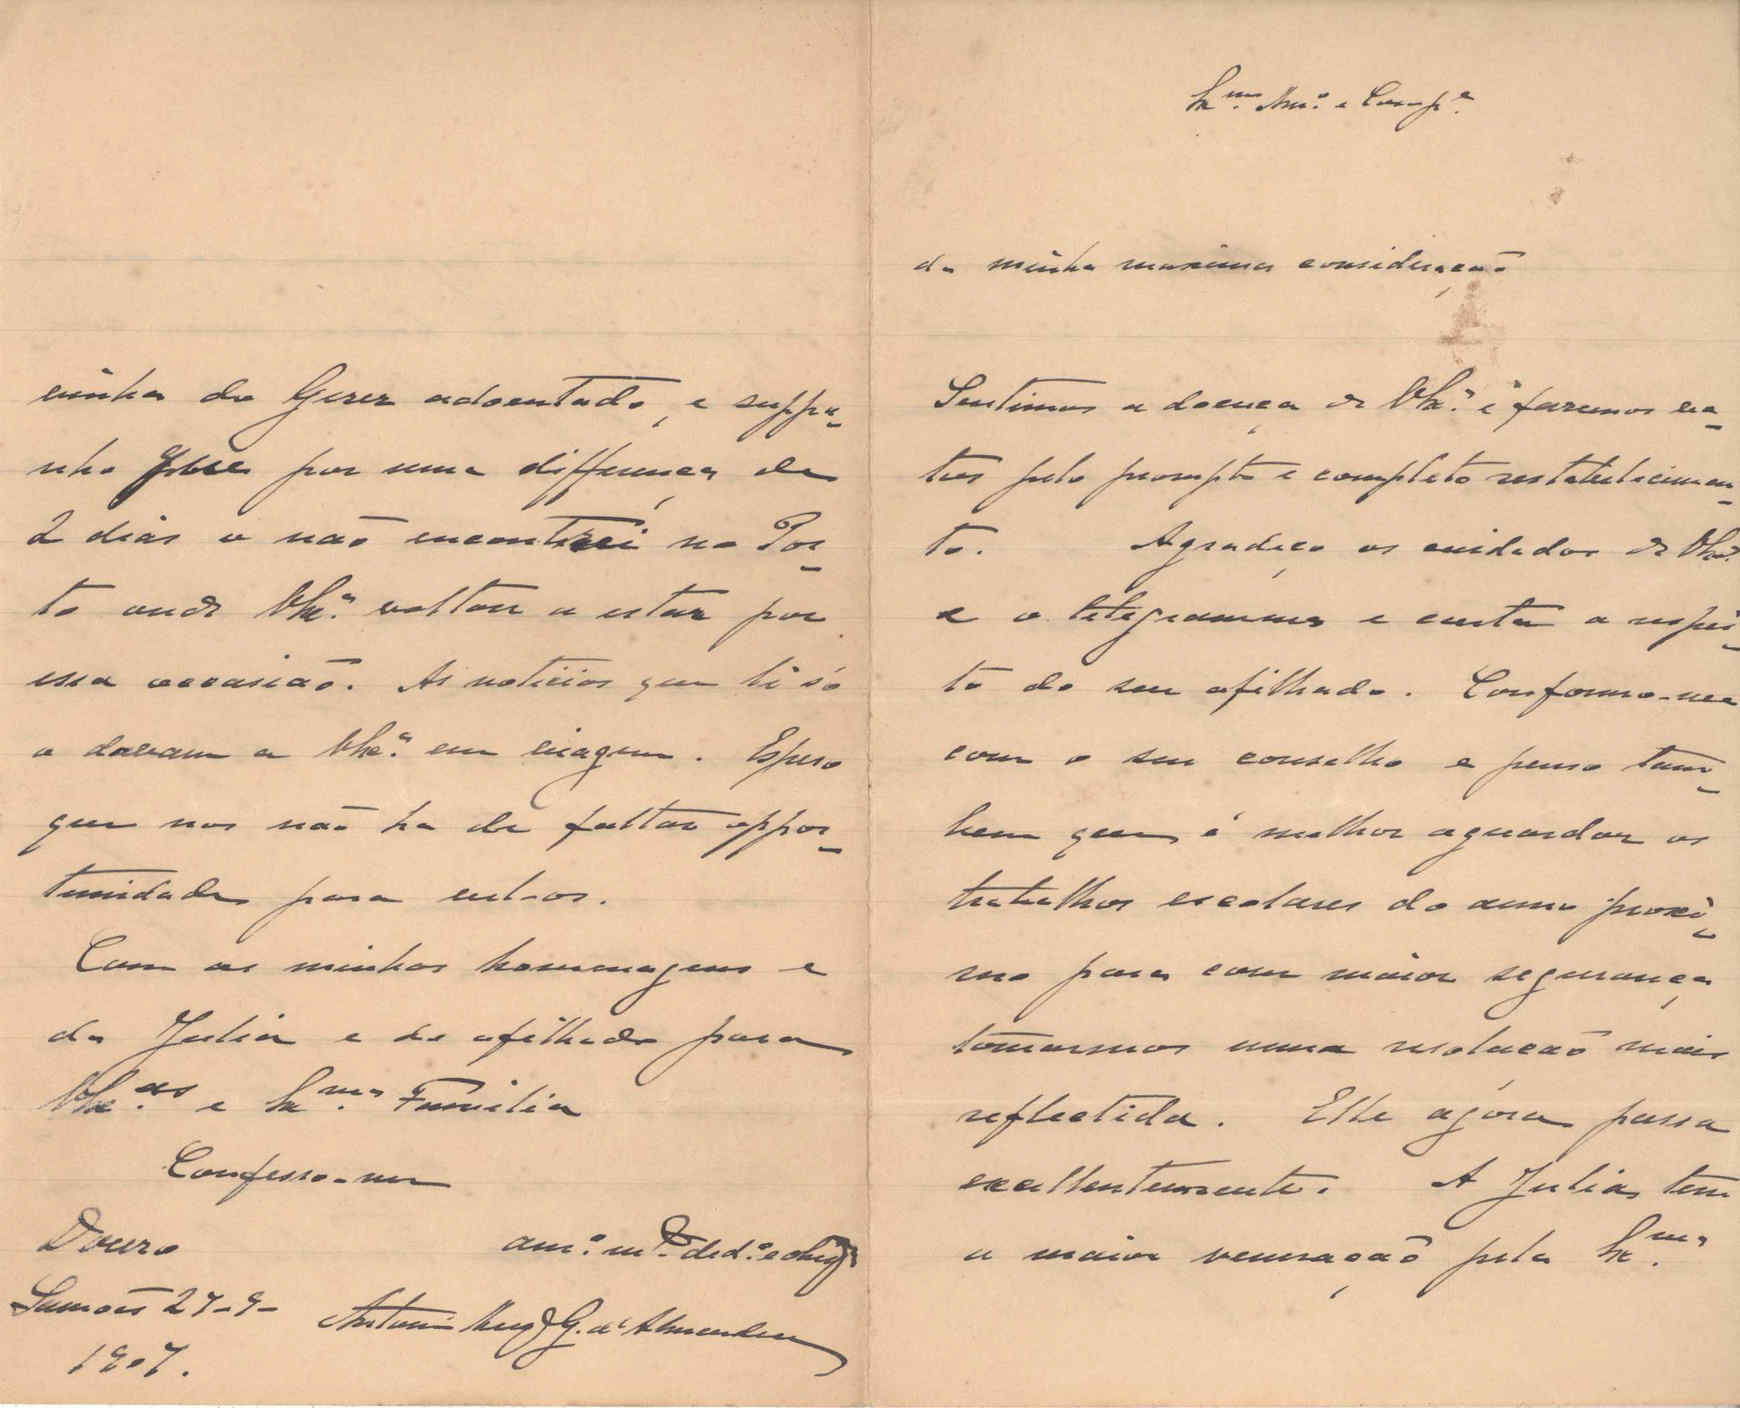 Ex.mo Am.º e Comp.e
da minha maxima consideração
Sentimos a doença de V. Ex.ª e fazemos vo-
tos pelo prompto e completo restabelecimen-
to. Agradeço os cuidados de V. Ex.ª
e o telegramma e carta a respei-
to do seu afilhado. Conformo-me
com o seu conselho e penso tam-
bem que é melhor aguardar os
trabalhos escolares do anno proxi-
mo para com maior segurança
tomarmos uma resolução mais
reflectida. Elle agora passa
excellentemente. A Julia tem
a maior veneração pela Ex.ma
vinha do Gerez adoentado, e suppo-
nho que por uma differença de
2 dias o não encontrei no Por-
to onde V. Ex.ª voltou a estar por
essa occasião. As noticias que li só
o davam a V. Ex.ª em viagem. Espero
que nos não ha de faltar oppor-
tunidade para
Com as minhas homenagens e
da Julia e do afilhado para
V. Ex.as e Ex.ma Familia
Confesso-me
Douro
am.º m.to ded.º e obrig
Samoes 27-9-
Antonio G. d'Almendra
1907.